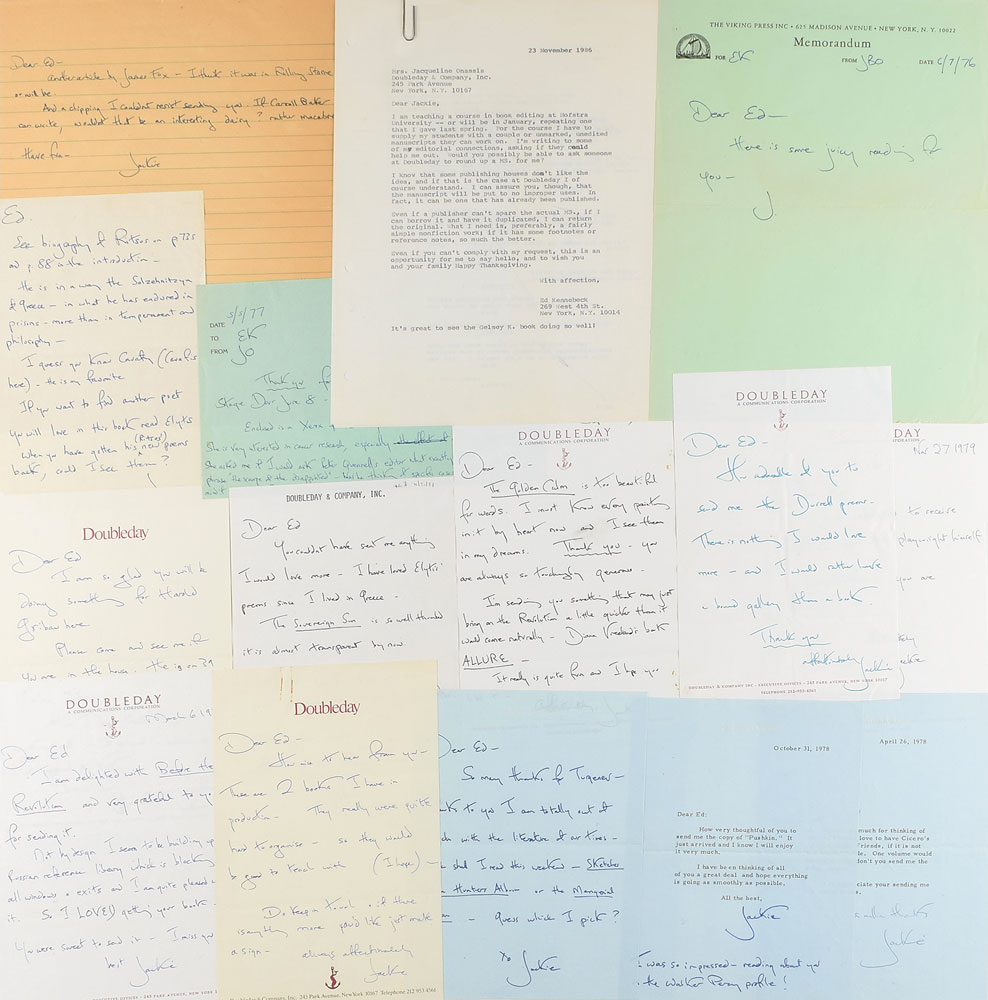 Dear Ed—
another article by James Fox – I think it was in Rolling Stone
or will be.
And a clipping I couldnt resist sending you. If Carroll Baker
can write, wouldnt that be an interesting diary? rather macabre
Have fun—
Jackie
23 November 1986
Mrs. Jacqueline Onassis
Doubleday & Company, Inc.
245 Park Avenue
New York, N.Y. 10167
Dear Jackie,
I am teaching a course in book editing at Hofstra
University -- or will be in January, repeating one
that I gave last spring. For the course I have to
supply my students with a couple or unmarked, unedited
manuscripts they can work on. I'm writing to some
of my editorial connections, asking if they could
help me out. Would you possibly be able to ask someone
at Doubleday to round up a MS. for me?
I know that some publishing houses don't like the
idea, and if that is the case at Doubleday I of
course understand. I can assure you, though, that
the manuscript will be put to no improper uses. In
fact, it can be one that has already been published.
Even if a publisher can't spare the actual MS., if I
can borrow it and have it duplicated, I can return
the original. What I need is, preferably, a fairly
simple nonfiction work; if it has some footnotes or
reference notes, so much the better.
Even if you can't comply with my request, this is an
opportunity for me to say hello, and to wish you
and your family Happy Thanksgiving.
With affection,
Ed Kennebeck
269 West 4th St.
New York, N.Y. 10014
It's great to see the Gelsey K. book doing so well!
THE VIKING PRESS INC • 625 MADISON AVENUE • NEW YORK, N. Y. 10022
Memorandum
FOR EK FROM JBO DATE 6/7/76
Dear Ed—
Here is some juicy reading for
you—
J.
Ed.
See biography of Ritsos on p 735
and p. 88 in the introduction —
He is in a way the Solzehnitzyn
of Greece — in what he has endured in
prisons — more than in temperament and
philosophy —
I guess you know Cavafy (Cavafis
here) — He is my favorite
If you want to find another poet
you will love in this book read Elytis
When you have gotten his (Ritsos) new poems
back, could I see them?
DATE 5/5/77
TO EK
FROM JO
Thank you for
Stage Door June 8 —
Enclosed is a Xerox
She is very interested in
DOUBLEDAY & COMPANY, INC.
Dear Ed
You couldnt have sent me anything
I would love more — I have loved Elytis'
poems since I lived in Greece —
The Sovereign Sun is so well thumbed
it is almost transparent by now
DOUBLEDAY
A COMMUNICATIONS CORPORATION
Dear Ed —
The Golden Calm is too beautiful
for words. I must know every painting
in it by heart now and I see them
in my dreams. Thank you — you
are always so touchingly generous —
Im sending you something that may just
bring on the Revolution a little quicker than it
would come naturally — Diana Vreeland's book
ALLURE —
It really is quite fun and I hope you
DOUBLEDAY
A COMMUNICATIONS CORPORATION
Dear Ed —
How adorable of you to
send me the Durrell poems —
There is nothing I would love
more — and I would rather have
a bound galley than a book.
Thank you
affectionately
Jackie
DOUBLEDAY & COMPANY INC • EXECUTIVE OFFICES • 245 PARK AVENUE, NEW YORK 10017
TELEPHONE 212-953-4561
DAY
Nov 27 1979
to receive
playwright himself
you are
Jackie
Doubleday
Dear Ed —
I am so glad you will be
doing something for Harold
here
Please come and see me if
you are in the house.
DOUBLEDAY
A COMMUNICATIONS CORPORATION
March 6 19
Dear Ed
I am delighted with Before the
Revolution and very grateful to you
for sending it.
Not by design I seem to be building up
Russian reference library which is blocking
all windows & exits and I am quite pleased
it. So I LOVED getting your book
You were sweet to send it — I miss you
best Jackie
EXECUTIVE OFFICES • 245 PARK AVENUE, NEW YORK 1
Doubleday
Dear Ed —
How nice to hear from you —
These are 2 books I have in
production — They really were quite
hard to organise — so they would
be good to teach with (I hope) —
Do keep in touch & if there
is anything more you'd like just make
a sign —
always affectionately
Jackie
Doubleday & Company, Inc. 245 Park Avenue, New York 10167 Telephone 212 953 4561
Dear Ed —
So many thanks for Turgenev —
nks to you I am totally out of
ch with the literature of our times —
shall I read this weekend — Sketches
Hunters Album or the
Guess which I pick?
xo Jackie
October 31, 1978
Dear Ed:
How very thoughtful of you to
send me the copy of "Pushkin." It
just arrived and I know I will enjoy
it very much.
I have been thinking of all
of you a great deal and hope everything
is going as smoothly as possible.
All the best,
Jackie
I was so impressed — reading about you
in the Walker Percy profile!
April 26, 1978
much for thinking of
love to have Cicero's
riends, if it is not
le. One volume would
on't you send me the
ciate your sending me
s.
thanks
Jackie